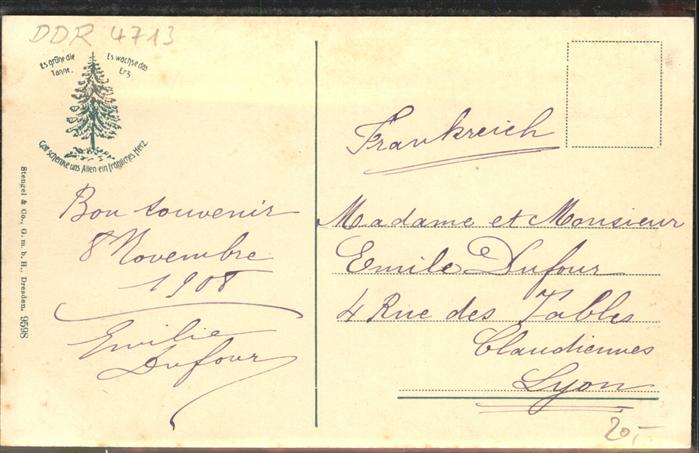 DDR 4713
Es grüne die
Tanne.
Es wachse das
Erz
Gott schenke uns Allen ein fröhliches Herz
Stengel & Co., G. m. b. H., Dresden. 9598
Bon souvenir
8 Novembre
1908
Emilie
Dufour
Frankreich
Madame et Monsieur
Emile Dufour
4 Rue des Tables
Claudiennes
Lyon
20,-